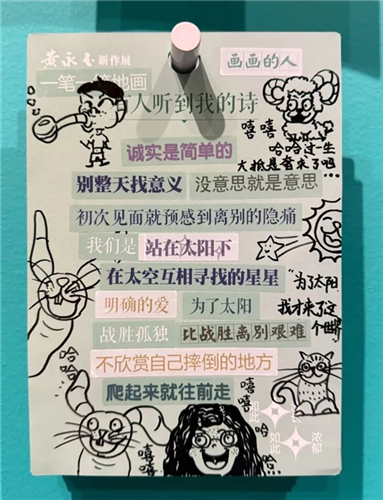 黄永玉新作展
画画的人
一笔一笔地画
有人听到我的诗
嘻嘻
哈哈这一生
大抵是奢来了吗
诚实是简单的
别整天找意义 没意思就是意思
初次见面就预感到离别的隐痛
我们是 站在太阳下
在太空互相寻找的星星
"为了太阳
我才来了这
个世界"
明确的爱 为了太阳
战胜孤独 比战胜离别艰难
哈哈
不欣赏自己摔倒的地方
爬起来就往前走
嘻嘻
哈哈
如此
如此
浓郁
嘻嘻
嘻嘻